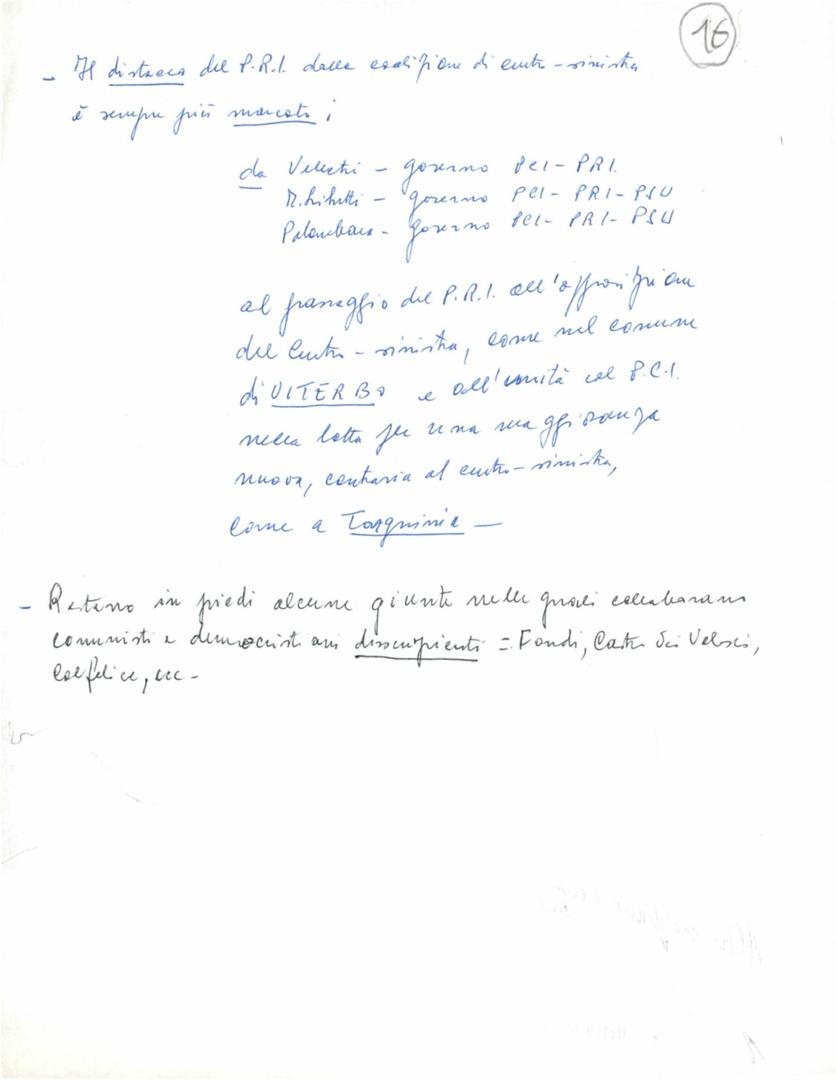 16
- Il distacco del P.R.I. dalla coalizione di centro-sinistra
è sempre più marcato;
da Velletri - governo PCI-PRI.
M. Libretti - governo PCI-PRI-PSU
Palombara - governo PCI-PRI-PSU
al passaggio del P.R.I. all'opposizione
del Centro-sinistra, come nel comune
di VITERBO e all'unità col P.C.I.
nella lotta per una maggioranza
nuova, contraria al centro-sinistra,
come a Tarquinia -
- Restano in piedi alcune giunte nelle quali collaborano
comunisti e democristiani dissenzienti = Fondi, Castro dei Volsci,
Colfelice, ecc -